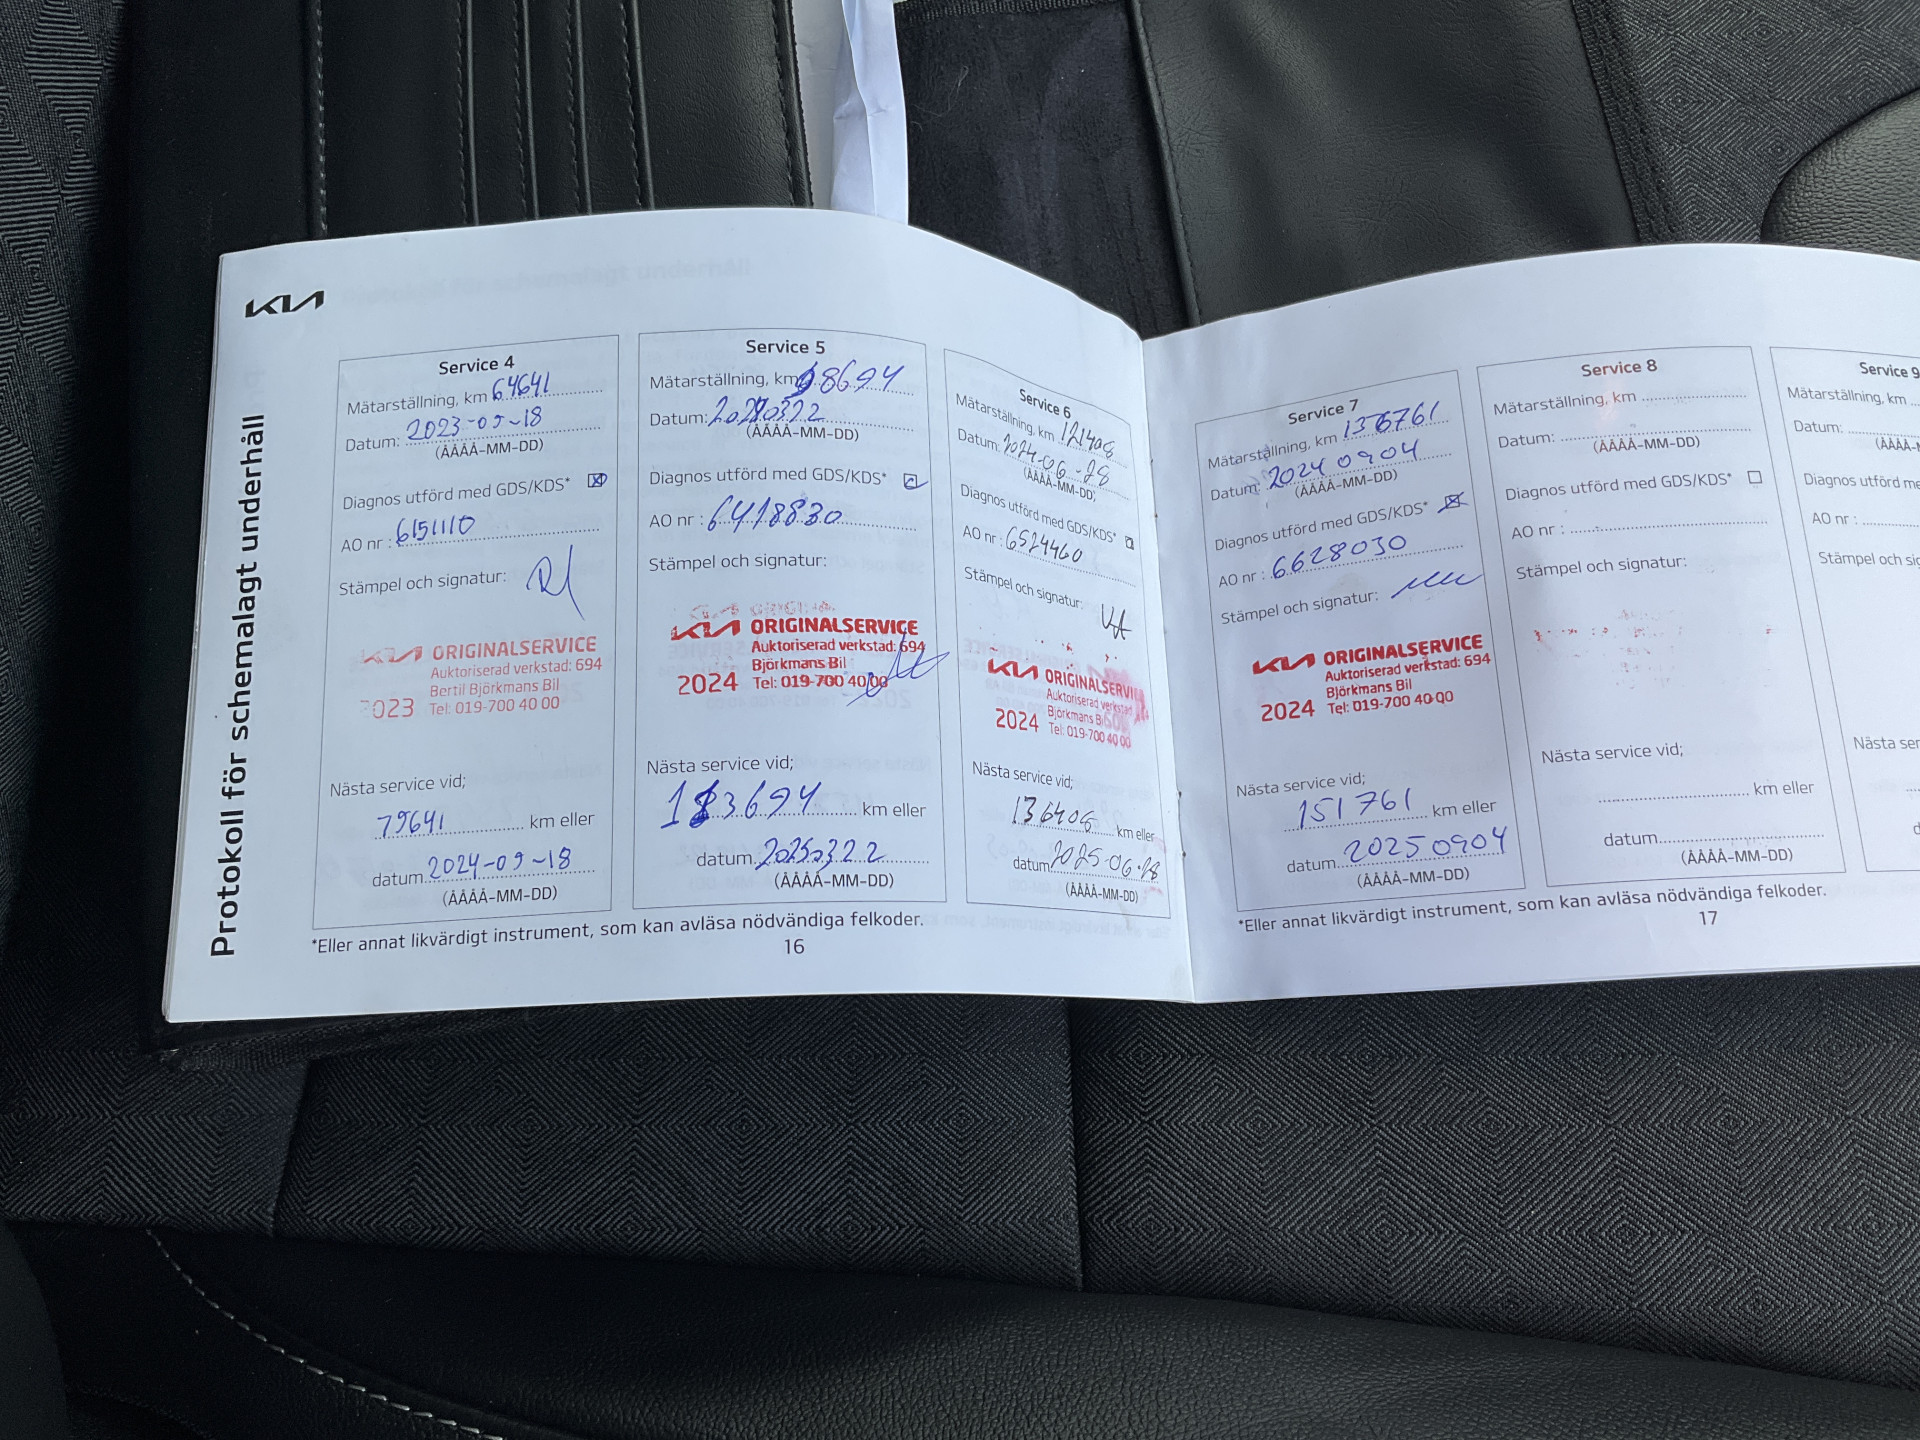 KIA
Protokoll för schemalagt underhåll
Service 4
Mätarställning, km 64641
Datum: 2023-09-18
(ÅÅÅÅ-MM-DD)
Diagnos utförd med GDS/KDS*
AO nr : 6151110
Stämpel och signatur:
KIA ORIGINALSERVICE
Auktoriserad verkstad: 694
Bertil Björkmans Bil
2023 Tel: 019-700 40 00
Nästa service vid;
79641 km eller
datum 2024-09-18
(ÅÅÅÅ-MM-DD)
Service 5
Mätarställning, km 98694
Datum: 20240322
(ÅÅÅÅ-MM-DD)
Diagnos utförd med GDS/KDS*
AO nr : 6418830
Stämpel och signatur:
KIA ORIGINALSERVICE
Auktoriserad verkstad: 694
Björkmans Bil
2024 Tel: 019-700 40 00
Nästa service vid;
113694 km eller
datum. 20250322
(ÅÅÅÅ-MM-DD)
Service 6
Mätarställning, km 121408
Datum: 2024-06-28
(ÅÅÅÅ-MM-DD)
Diagnos utförd med GDS/KDS*
AO nr : 6524460
Stämpel och signatur:
KIA ORIGINALSERVICE
Auktoriserad verkstad
Björkmans Bil
2024 Tel: 019-700 40 00
Nästa service vid;
136408 km eller
datum 2025-06-28
(ÅÅÅÅ-MM-DD)
*Eller annat likvärdigt instrument, som kan avläsa nödvändiga felkoder.
16
Service 7
Mätarställning, km 136761
Datum: 20240904
(ÅÅÅÅ-MM-DD)
Diagnos utförd med GDS/KDS*
AO nr : 6628030
Stämpel och signatur:
KIA ORIGINALSERVICE
Auktoriserad verkstad: 694
Björkmans Bil
2024 Tel: 019-700 40 00
Nästa service vid;
151761 km eller
datum. 20250904
(ÅÅÅÅ-MM-DD)
Service 8
Mätarställning, km
Datum:
(ÅÅÅÅ-MM-DD)
Diagnos utförd med GDS/KDS*
AO nr :
Stämpel och signatur:
Nästa service vid;
km eller
datum.
(ÅÅÅÅ-MM-DD)
Service 9
Mätarställning, km
Datum:
(ÅÅÅÅ-M
Diagnos utförd me
AO nr :
Stämpel och sig
Nästa ser
*Eller annat likvärdigt instrument, som kan avläsa nödvändiga felkoder.
17